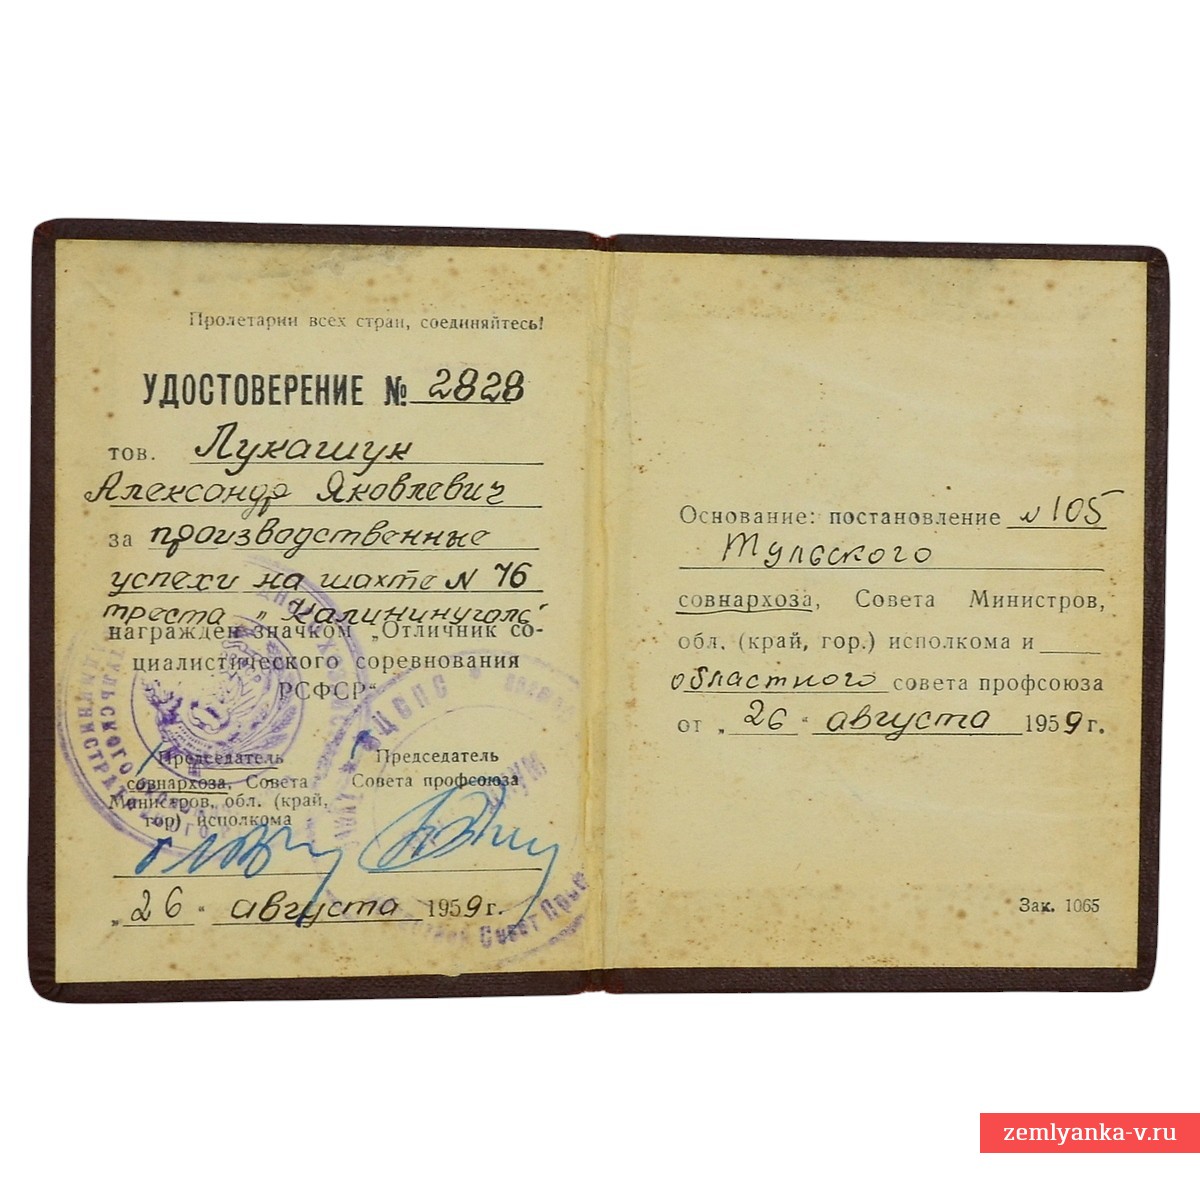 Пролетарии всех стран, соединяйтесь!
УДОСТОВЕРЕНИЕ № 2828
тов. Лукашук
Александр Яковлевич
за производственные
успехи на шахте N 16
треста „Калининуголь"
награжден значком „Отличник со-
циалистического соревнования
РСФСР"
Председатель
совнархоза, Совета
Министров, обл. (край,
гор) исполкома
Председатель
Совета профсоюза
„26" августа 1959 г.
Основание: постановление N 105
Тульского
совнархоза, Совета Министров,
обл. (край, гор.) исполкома и
областного совета профсоюза
от „26" августа 1959 г.
Зак. 1065
ВЦСПС
Совет Проф
zemlyanka-v.ru